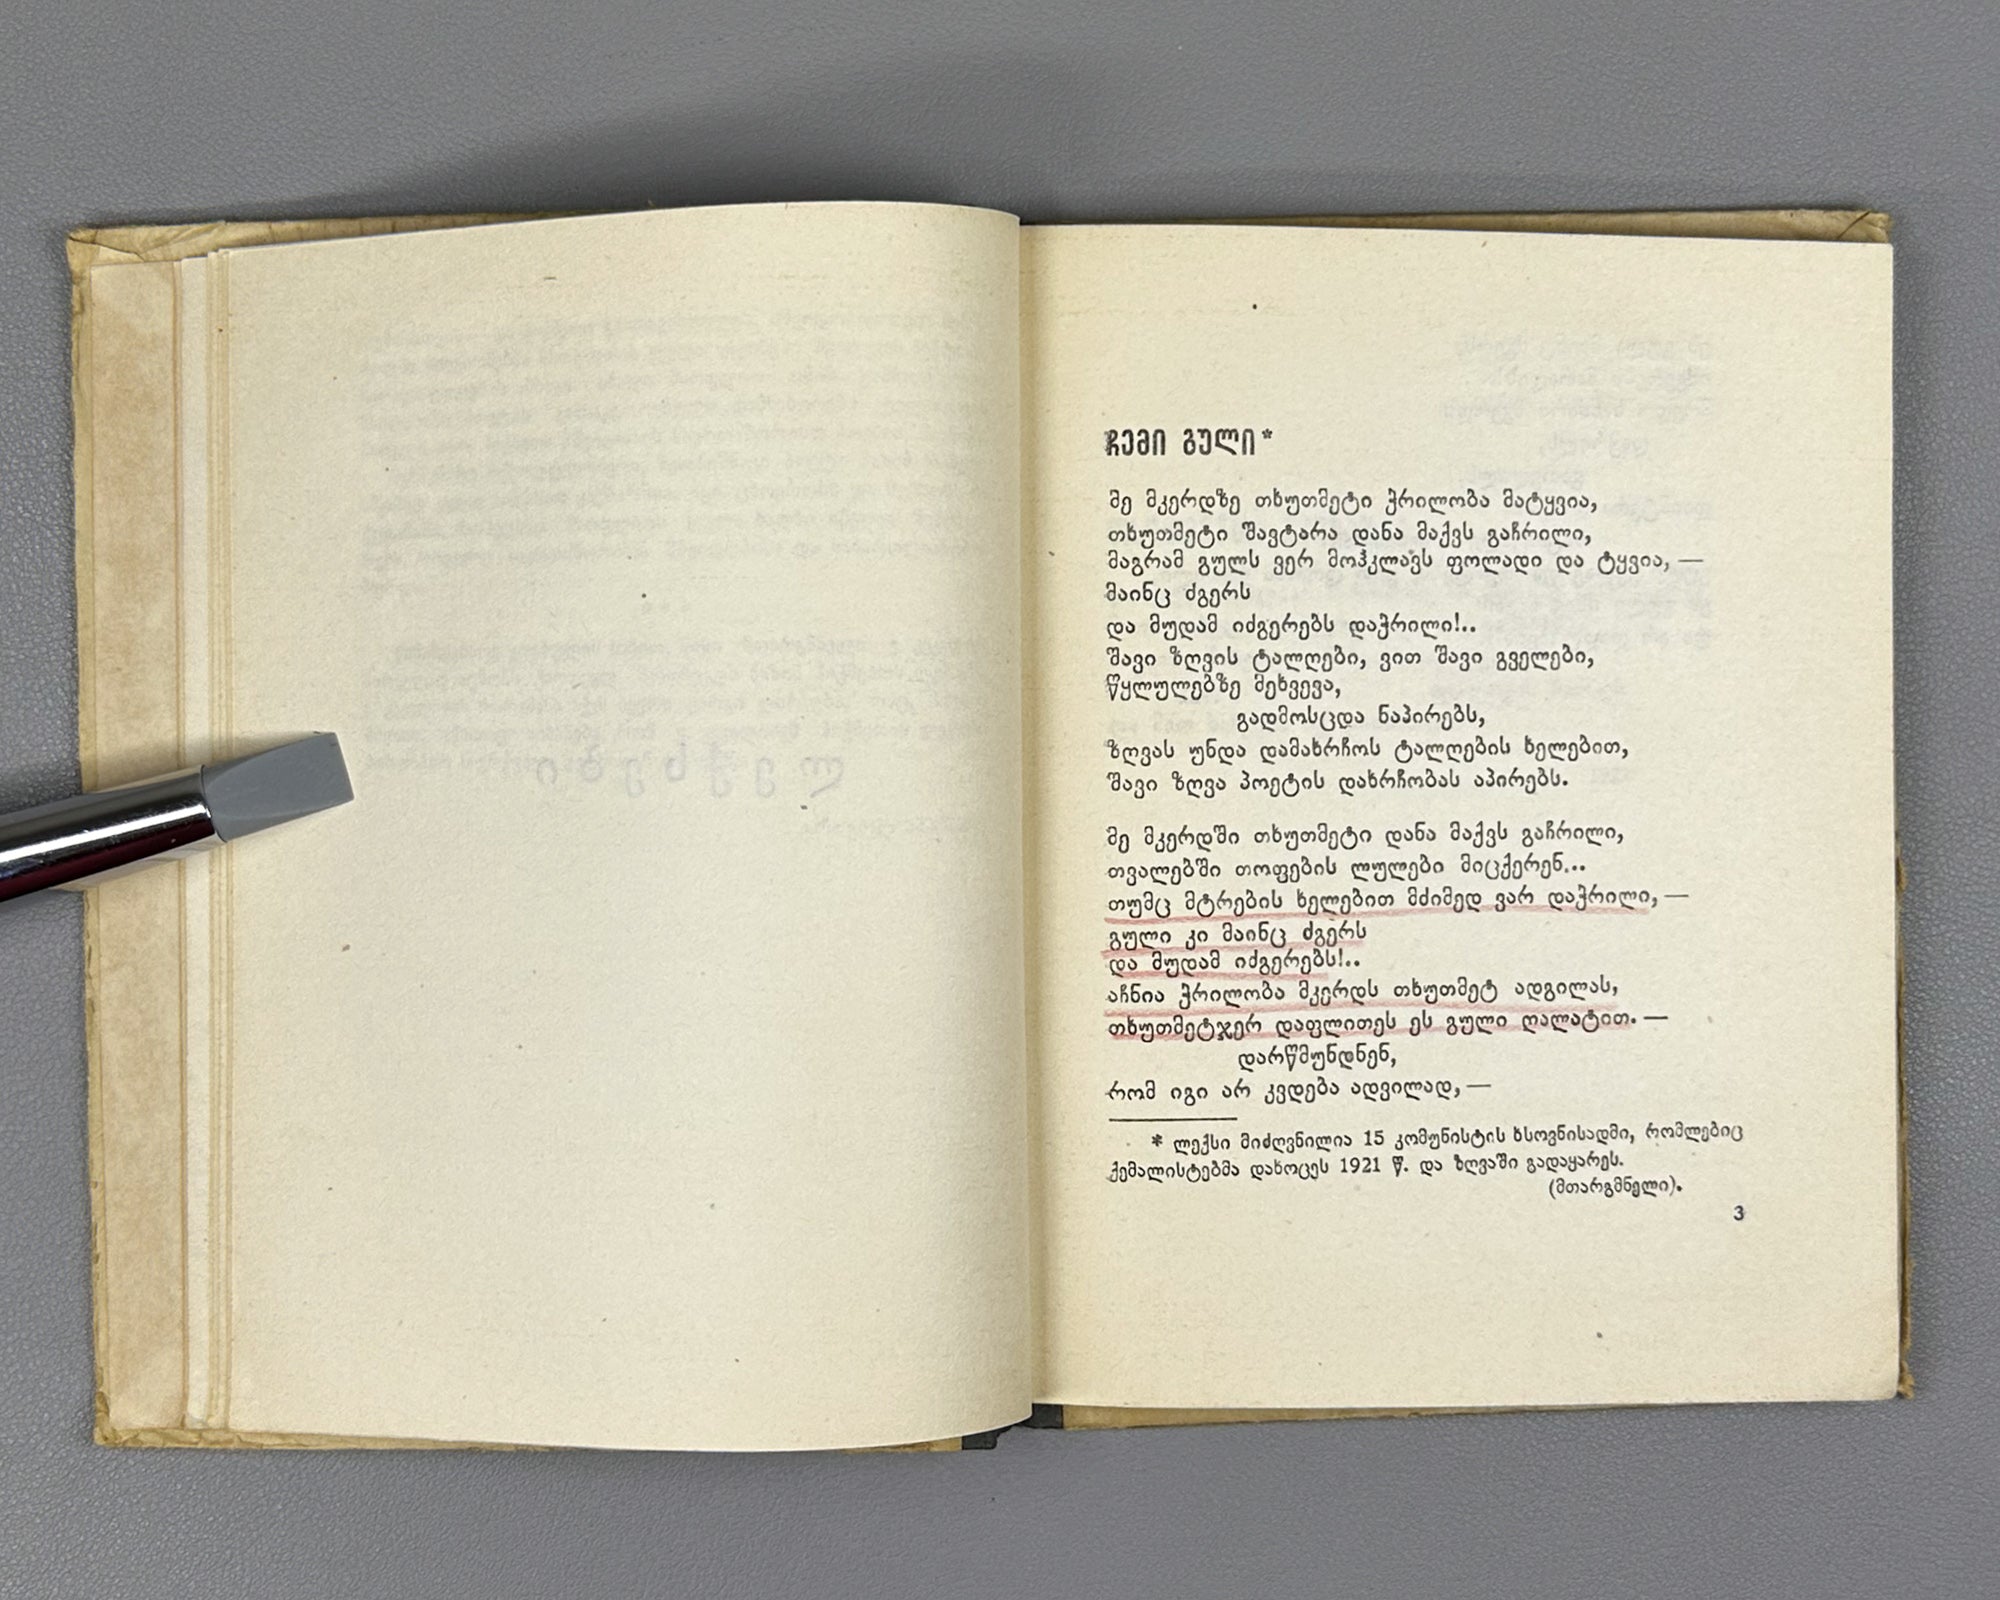 ჩემი გული*
მე მკერდზე თხუთმეტი ჭრილობა მატყვია,
თხუთმეტი შავტარა დანა მაქვს გაჩრილი,
მაგრამ გულს ვერ მოჰკლავს ფოლადი და ტყვია, —
მაინც ძგერს
და მუდამ იძგერებს დაჭრილი!..
შავი ზღვის ტალღები, ვით შავი გველები,
წყლულებზე მეხვევა,
გადმოსცდა ნაპირებს,
ზღვას უნდა დამახრჩოს ტალღების ხელებით,
შავი ზღვა პოეტის დახრჩობას აპირებს.
მე მკერდში თხუთმეტი დანა მაქვს გაჩრილი,
თვალებში თოფების ლულები მიცქერენ...
თუმც მტრების ხელებით მძიმედ ვარ დაჭრილი, —
გული კი მაინც ძგერს
და მუდამ იძგერებს!..
აჩნია ჭრილობა მკერდს თხუთმეტ ადგილას,
თხუთმეტჯერ დაფლითეს ეს გული ღალატით. —
დარწმუნდნენ,
რომ იგი არ კვდება ადვილად, —
* ლექსი მიძღვნილია 15 კომუნისტის ხსოვნისადმი, რომლებიც
ქემალისტებმა დახოცეს 1921 წ. და ზღვაში გადაყარეს.
(მთარგმნელი).
3